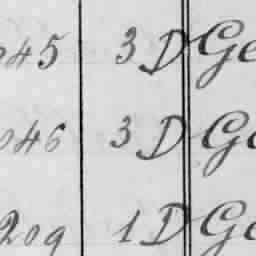 045 3 D Ge
046 3 D Ge
209 1 D Ge